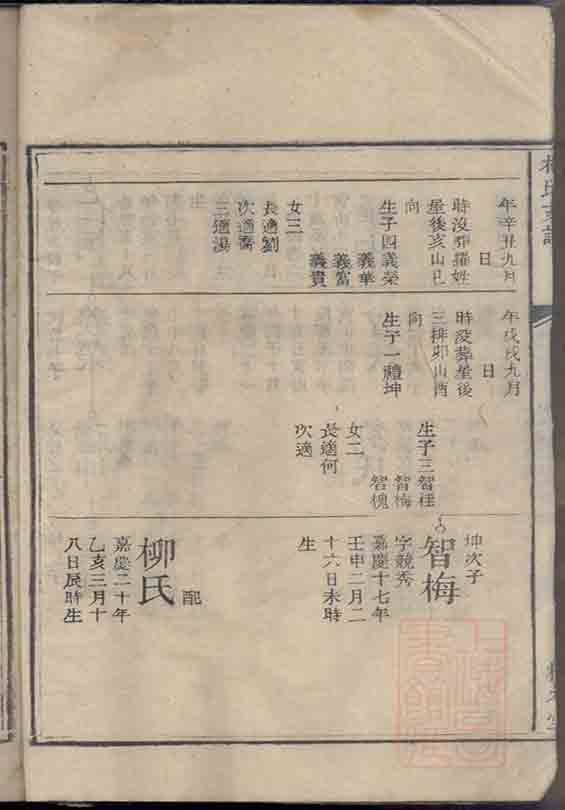 年辛丑九月
日
時沒葬羅姓
屋後亥山巳
向
生子四義榮
義華
義富
義貴
女三
長適劉
次適喬
三適湯
年戊戌九月
日
時沒葬屋後
三排卯山酉
向
生子一禮坤
生子三智桂
智梅
智槐
女二
長適何
次適
坤次子
智梅
字競秀
嘉慶十七年
壬申二月二
十六日未時
生
配
柳氏
嘉慶二十年
乙亥三月十
八日辰時生